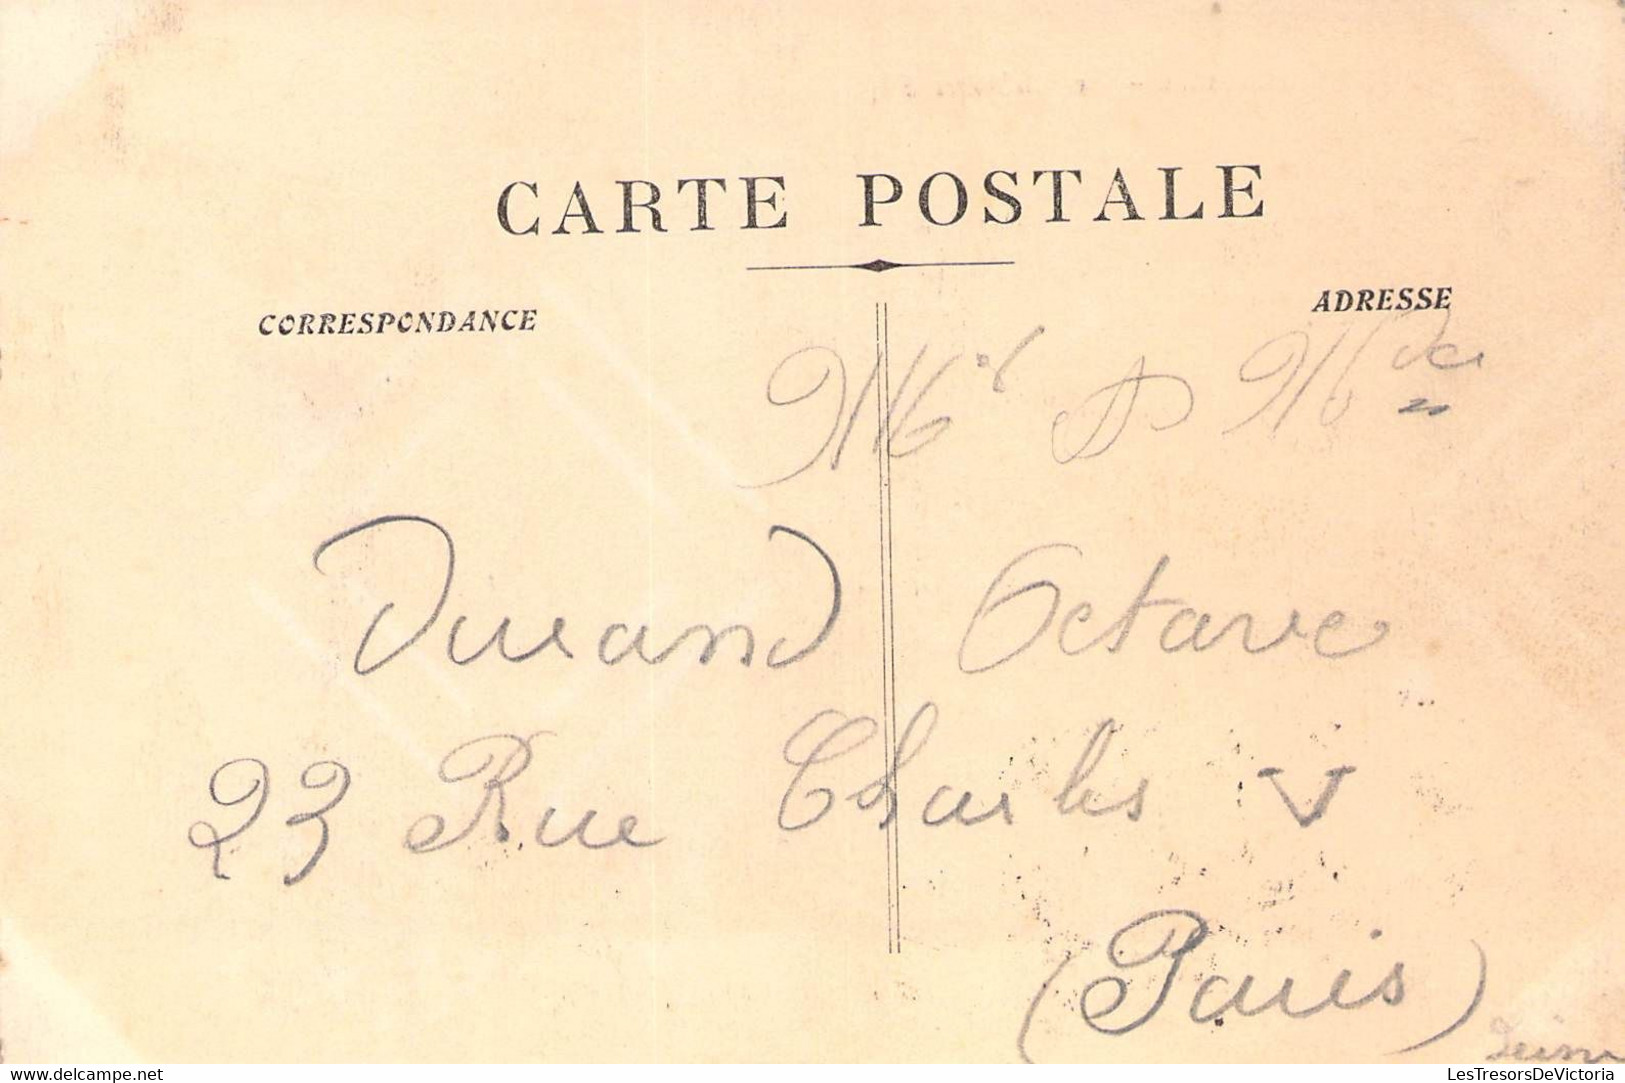 CARTE POSTALE
CORRESPONDANCE
ADRESSE
Mr & Mde
Durand Octave
23 Rue Charles V
(Paris)
www.delcampe.net
LesTresorsDeVictoria